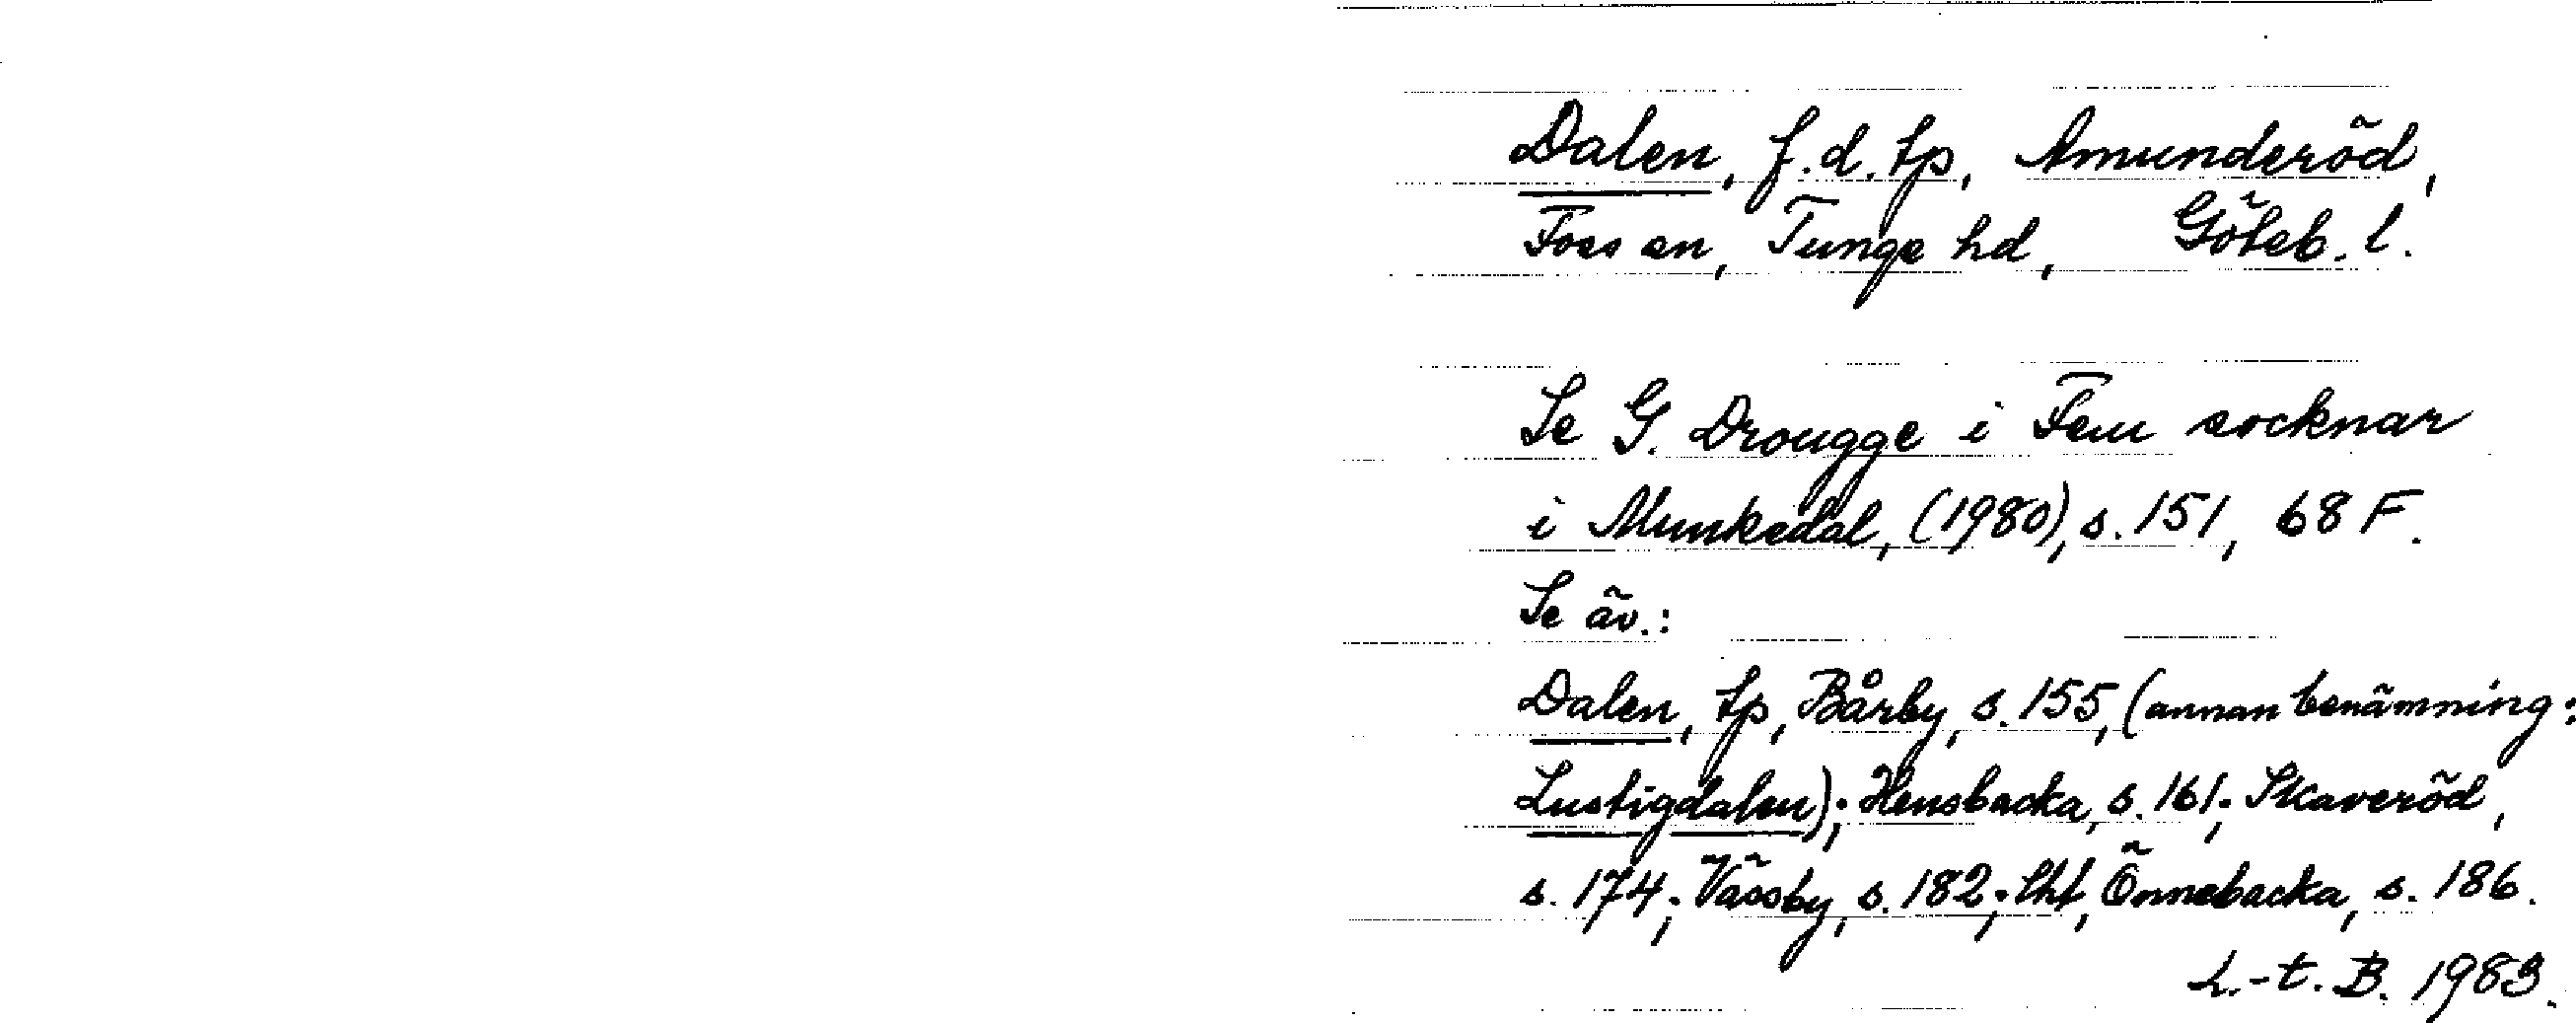 Dalen, f.d. tp, Amunderöd,
Foss sn, Tunge hd, Göteb. l.
Se G. Drougge i Fem socknar
i Munkedal, (1980), s. 151, 68 F.
Se äv.:
Dalen, tp, Bårby, s. 155, (annan benämning:
Lustigdalen); Hensbacka, s. 161; Skaveröd,
s. 174; Vässby, s. 182; lht, Önnebacka, s. 186.
L.-t. B. 1983.